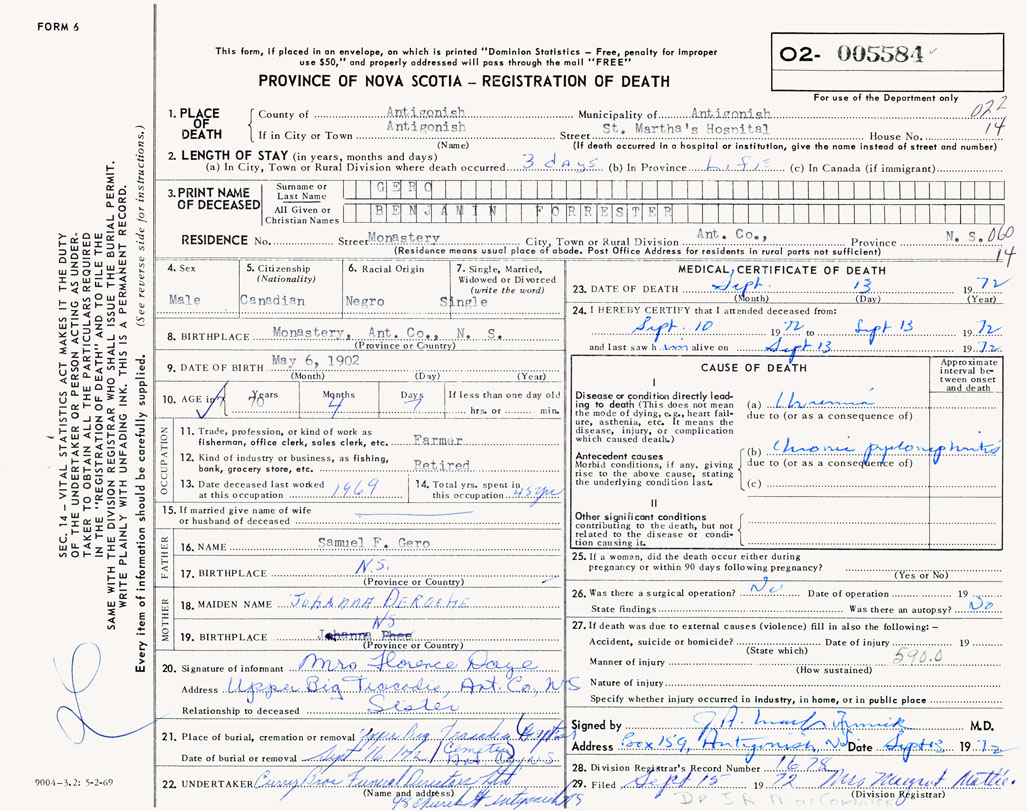 FORM 6
This form, if placed in an envelope, on which is printed "Dominion Statistics – Free, penalty for improper
use $50," and properly addressed will pass through the mail "FREE"
PROVINCE OF NOVA SCOTIA – REGISTRATION OF DEATH
O2- 005584
For use of the Department only
022
14
1. PLACE OF DEATH
County of Antigonish Municipality of Antigonish
If in City or Town Antigonish Street St. Martha's Hospital House No.
(Name) (If death occurred in a hospital or institution, give the name instead of street and number)
2. LENGTH OF STAY (in years, months and days)
(a) In City, Town or Rural Division where death occurred 3 days (b) In Province Life (c) In Canada (if immigrant)
3. PRINT NAME OF DECEASED
Surname or Last Name GERO
All Given or Christian Names BENJAMIN FORRESTER
RESIDENCE No. Street Monastery City, Town or Rural Division Ant. Co., Province N. S. 060
(Residence means usual place of abode. Post Office Address for residents in rural parts not sufficient) 14
4. Sex
Male
5. Citizenship
(Nationality)
Canadian
6. Racial Origin
Negro
7. Single, Married,
Widowed or Divorced
(write the word)
Single
8. BIRTHPLACE Monastery, Ant. Co., N. S.
(Province or Country)
9. DATE OF BIRTH May 6, 1902
(Month) (Day) (Year)
10. AGE in Years Months Days If less than one day old
70 4 7 hrs. or min.
OCCUPATION
11. Trade, profession or kind of work as
fisherman, office clerk, sales clerk, etc. Farmer
12. Kind of industry or business, as fishing,
bank, grocery store, etc. Retired
13. Date deceased last worked
at this occupation 1969
14. Total yrs. spent in
this occupation 45 yrs
15. If married give name of wife
or husband of deceased
FATHER
16. NAME Samuel F. Gero
17. BIRTHPLACE N.S.
(Province or Country)
MOTHER
18. MAIDEN NAME JOHANNA DEROCHE
NS
19. BIRTHPLACE Johanna
(Province or Country)
20. Signature of informant Mrs Florence Daye
Address Upper Big Tracadie, Ant. Co, NS
Relationship to deceased Sister
21. Place of burial, cremation or removal Upper Big Tracadie Baptist
Date of burial or removal Sept 16 1972 Cemetery Ant Co, N.S.
22. UNDERTAKER Curry Bros Funeral Directors Ltd
(Name and address) Church St Antigonish NS
MEDICAL CERTIFICATE OF DEATH
23. DATE OF DEATH Sept. 13 1972
(Month) (Day) (Year)
24. I HEREBY CERTIFY that I attended deceased from:
Sept. 10 1972 to Sept 13 1972
and last saw him alive on Sept 13 1972
CAUSE OF DEATH
Approximate
interval be-
tween onset
and death
I
Disease or condition directly lead-
ing to death (This does not mean
the mode of dying, e.g., heart fail-
ure, asthenia, etc. It means the
disease, injury, or complication
which caused death.)
(a) Uremia
due to (or as a consequence of)
Antecedent causes
Morbid conditions, if any, giving
rise to the above cause, stating
the underlying condition last.
(b) Chronic pyelonephritis
due to (or as a consequence of)
(c)
II
Other significant conditions
contributing to the death, but not
related to the disease or condi-
tion causing it.
25. If a woman, did the death occur either during
pregnancy or within 90 days following pregnancy?
(Yes or No)
26. Was there a surgical operation? No Date of operation 19
State findings Was there an autopsy? No
27. If death was due to external causes (violence) fill in also the following:–
Accident, suicide or homicide? Date of injury 19
(State which)
590.0
Manner of injury
(How sustained)
Nature of injury
Specify whether injury occurred in industry, in home, or in public place
Signed by J. A. MacCormick M.D.
Address Box 159, Antigonish, NS Date Sept 13 1972
28. Division Registrar's Record Number 1678
29. Filed Sept 15 1972 Mrs Margaret Mattie
(Division Registrar)
Dr J.A. MacCormick
SEC. 14 – VITAL STATISTICS ACT MAKES IT THE DUTY
OF THE UNDERTAKER OR PERSON ACTING AS UNDER-
TAKER TO OBTAIN ALL THE PARTICULARS REQUIRED
IN THE "REGISTRATION OF DEATH" AND TO FILE THE
SAME WITH THE DIVISION REGISTRAR WHO SHALL ISSUE THE BURIAL PERMIT.
WRITE PLAINLY WITH UNFADING INK. THIS IS A PERMANENT RECORD.
Every item of information should be carefully supplied. (See reverse side for instructions.)
9004-3.2: 5-2-69